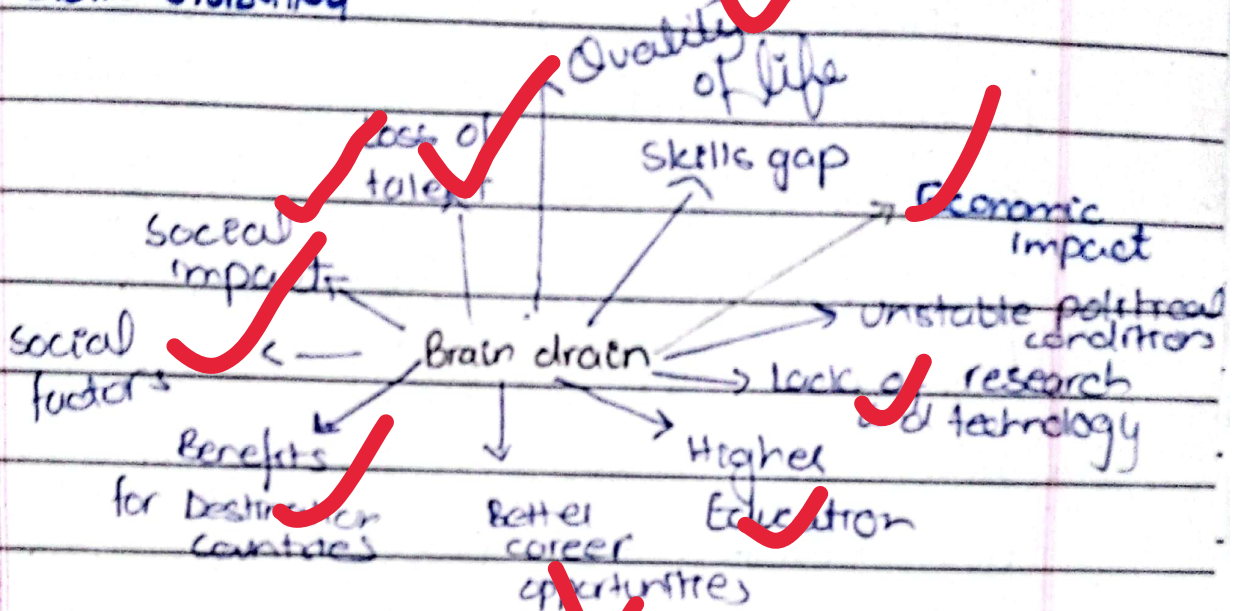 Quality
of life
Loss of
talent
Skills gap
Economic
impact
Social
impact
Unstable political
conditions
Social
factors
Brain drain
Lack of research
and technology
Benefits
for Destination
Countries
Higher
Education
Better
career
opportunities